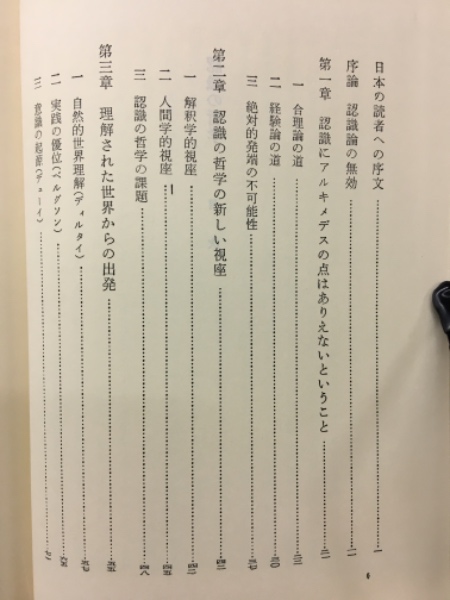 日本の読者への序文 一
序論 認識論の無効 一一
第一章 認識にアルキメデスの点はありえないということ 二一
一 合理論の道 二三
二 経験論の道 三〇
三 絶対的発端の不可能性
第二章 認識の哲学の新しい視座 四二
一 解釈学的視座 四二
二 人間学的視座 四五
三 認識の哲学の課題 四八
第三章 理解された世界からの出発 五五
一 自然的世界理解(ディルタイ) 五七
二 実践の優位(ベルグソン) 六五
三 意識の起源(デューイ)